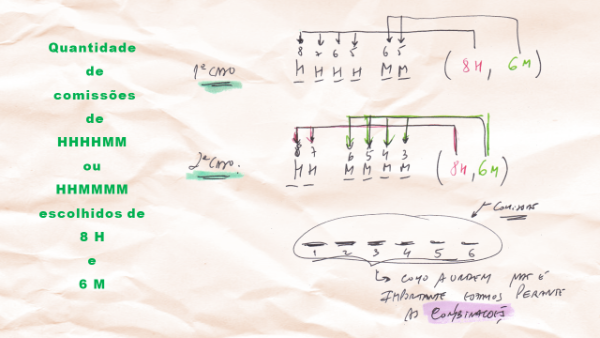 Quantidade
de
comissões
de
HHHHMM
ou
HHMMMM
escolhidos de
8 H
e
6 M
1º CASO
8 2 6 5 6 5
H H H H M M
(8H, 6M)
2º CASO.
8 7 6 5 4 3
H H M M M M
(8H, 6M)
COMISSÃO
1 2 3 4 5 6
↳ COMO A ORDEM NÃO É
IMPORTANTE ESTAMOS PERANTE
AS COMBINAÇÕES